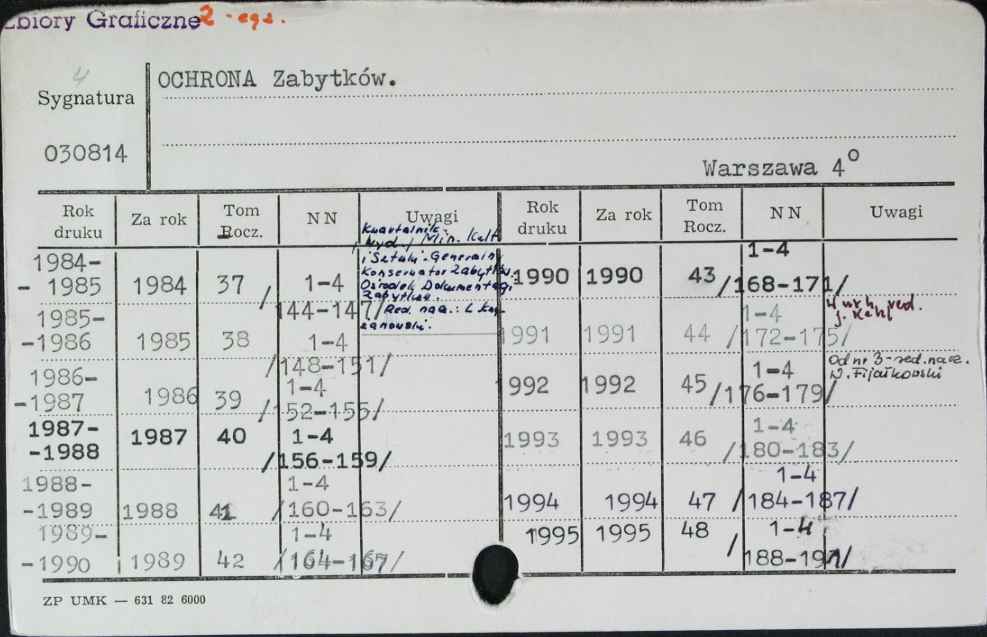 Zbiory Graficzne 2 - egz.
4
OCHRONA Zabytków.
Sygnatura
030814
Warszawa 4°
Rok druku Za rok Tom Rocz. NN Uwagi Rok druku Za rok Tom Rocz. NN Uwagi
1984-
- 1985 1984 37 1-4 /144-147/
Kwartalnik.
wyd. Min. Kult.
i Sztuki. Generalny
Konserwator Zabytków.
Ośrodek Dokumentacji
Zabytków.
Red. nacz.: L. Krzy-
żanowski.
1985-
-1986 1985 38 1-4 /148-151/
1986-
-1987 1986 39 1-4 /152-155/
1987-
-1988 1987 40 1-4 /156-159/
1988-
-1989 1988 41 1-4 /160-163/
1989-
-1990 1989 42 1-4 /164-167/
1990 1990 43 1-4 /168-171/
1991 1991 44 1-4 /172-175/
red.
1992 1992 45 1-4 /176-179/
Od nr 3-red. nacz.
W. Fijałkowski
1993 1993 46 1-4 /180-183/
1994 1994 47 1-4 /184-187/
1995 1995 48 1-4 /188-191/
ZP UMK — 631 82 6000